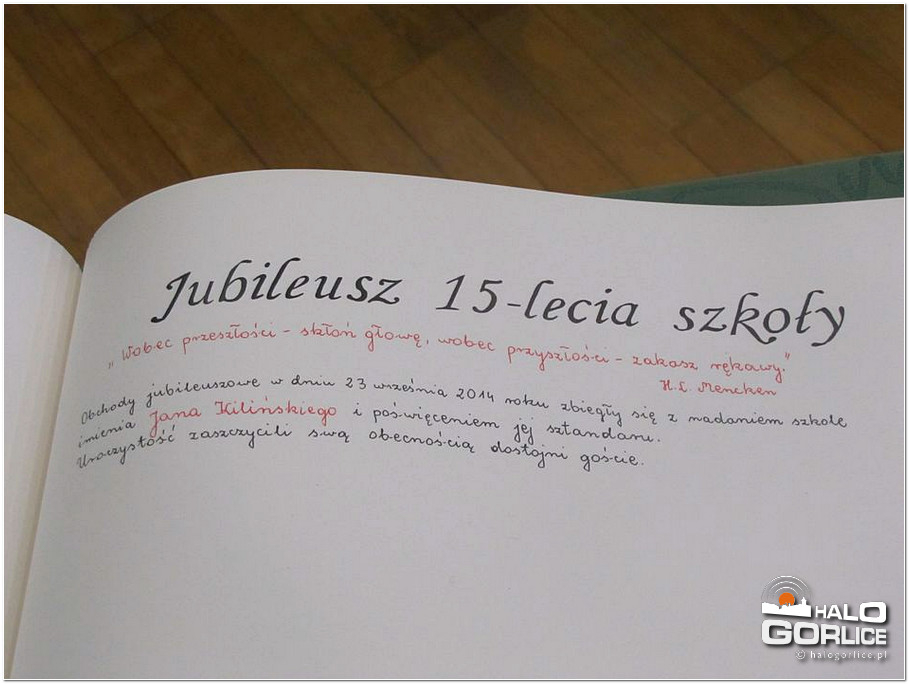 Jubileusz 15-lecia szkoły
„Wobec przeszłości - skłoń głowę, wobec przyszłości - zakasz rękawy."
H.L Mencken
Obchody jubileuszowe w dniu 23 września 2014 roku zbiegły się z nadaniem szkole
imienia Jana Kilińskiego i poświęceniem jej sztandaru.
Uroczystość zaszczycili swą obecnością dostojni goście.
HALO
GORLICE
© halogorlice.pl